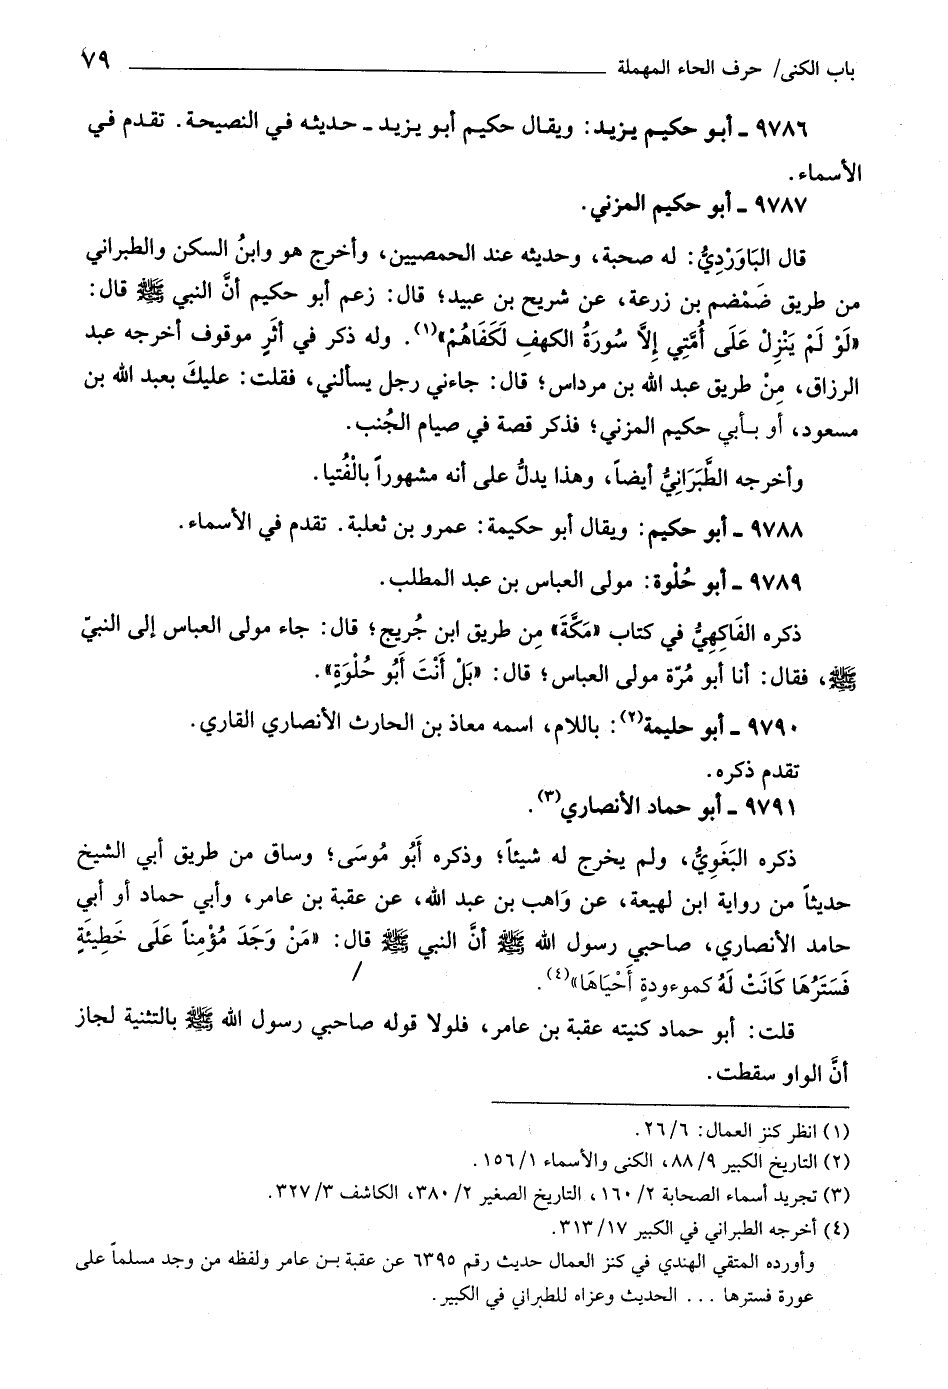 باب الكنى/ حرف الحاء المهملة ٧٩
٩٧٨٦ ـ أبو حكيم يزيد: ويقال حكيم أبو يزيد ـ حديثه في النصيحة. تقدم في
الأسماء.
٩٧٨٧ ـ أبو حكيم المزني.
قال البَاوَرْدِيُّ: له صحبة، وحديثه عند الحمصيين، وأخرج هو وابنُ السكن والطبراني
من طريق ضَمْضم بن زرعة، عن شريح بن عبيد؛ قال: زعم أبو حكيم أنَّ النبي ﷺ قال:
«لَوْ لَمْ يَنْزِلْ عَلَى أُمَّتِي إِلاَّ سُورَةُ الكهفِ لَكَفَاهُمْ»(١). وله ذكر في أثَرٍ موقوف أخرجه عبد
الرزاق، مِنْ طريق عبد الله بن مرداس؛ قال: جاءني رجل يسألني، فقلت: عليكَ بعبد الله بن
مسعود، أو بـأبي حكيم المزني؛ فذكر قصة في صيام الجُنب.
وأخرجه الطَّبَرَانِيُّ أيضاً، وهذا يدلُّ على أنه مشهوراً بالْفُتيا.
٩٧٨٨ ـ أبو حكيم: ويقال أبو حكيمة: عمرو بن ثعلبة. تقدم في الأسماء.
٩٧٨٩ ـ أبو حُلْوة: مولى العباس بن عبد المطلب.
ذكره الفَاكِهِيُّ في كتاب «مَكَّةَ» مِن طريق ابن جُريج؛ قال: جاء مولى العباس إلى النبيّ
ﷺ، فقال: أنا أبو مُرّة مولى العباس؛ قال: «بَلْ أَنْتَ أَبُو حُلْوَةٍ».
٩٧٩٠ ـ أبو حليمة(٢): باللام، اسمه معاذ بن الحارث الأنصاري القاري.
تقدم ذكره.
٩٧٩١ ـ أبو حماد الأنصاري(٣).
ذكره البَغَوِيُّ، ولم يخرج له شيئاً؛ وذكره أَبُو مُوسَى؛ وساق من طريق أبي الشيخ
حديثاً من رواية ابن لهيعة، عن وَاهب بن عبد الله، عن عقبة بن عامر، وأبي حماد أو أبي
حامد الأنصاري، صاحبي رسول الله ﷺ أنَّ النبي ﷺ قال: «مَنْ وَجَدَ مُؤْمِناً عَلَى خَطِيئَةٍ
فَسَتَرُهَا كَانَتْ لَهُ كموءودةٍ أَحْيَاهَا»(٤).
قلت: أبو حماد كنيته عقبة بن عامر، فلولا قوله صاحبي رسول الله ﷺ بالتثنية لجاز
أنَّ الواو سقطت.
(١) انظر كنز العمال: ٢٦/٦.
(٢) التاريخ الكبير ٨٨/٩، الكنى والأسماء ١٥٦/١.
(٣) تجريد أسماء الصحابة ١٦٠/٢، التاريخ الصغير ٣٨٠/٢، الكاشف ٣٢٧/٣.
(٤) أخرجه الطبراني في الكبير ٣١٣/١٧.
وأورده المتقي الهندي في كنز العمال حديث رقم ٦٣٩٥ عن عقبة بـن عامر ولفظه من وجد مسلماً على
عورة فسترها ... الحديث وعزاه للطبراني في الكبير.